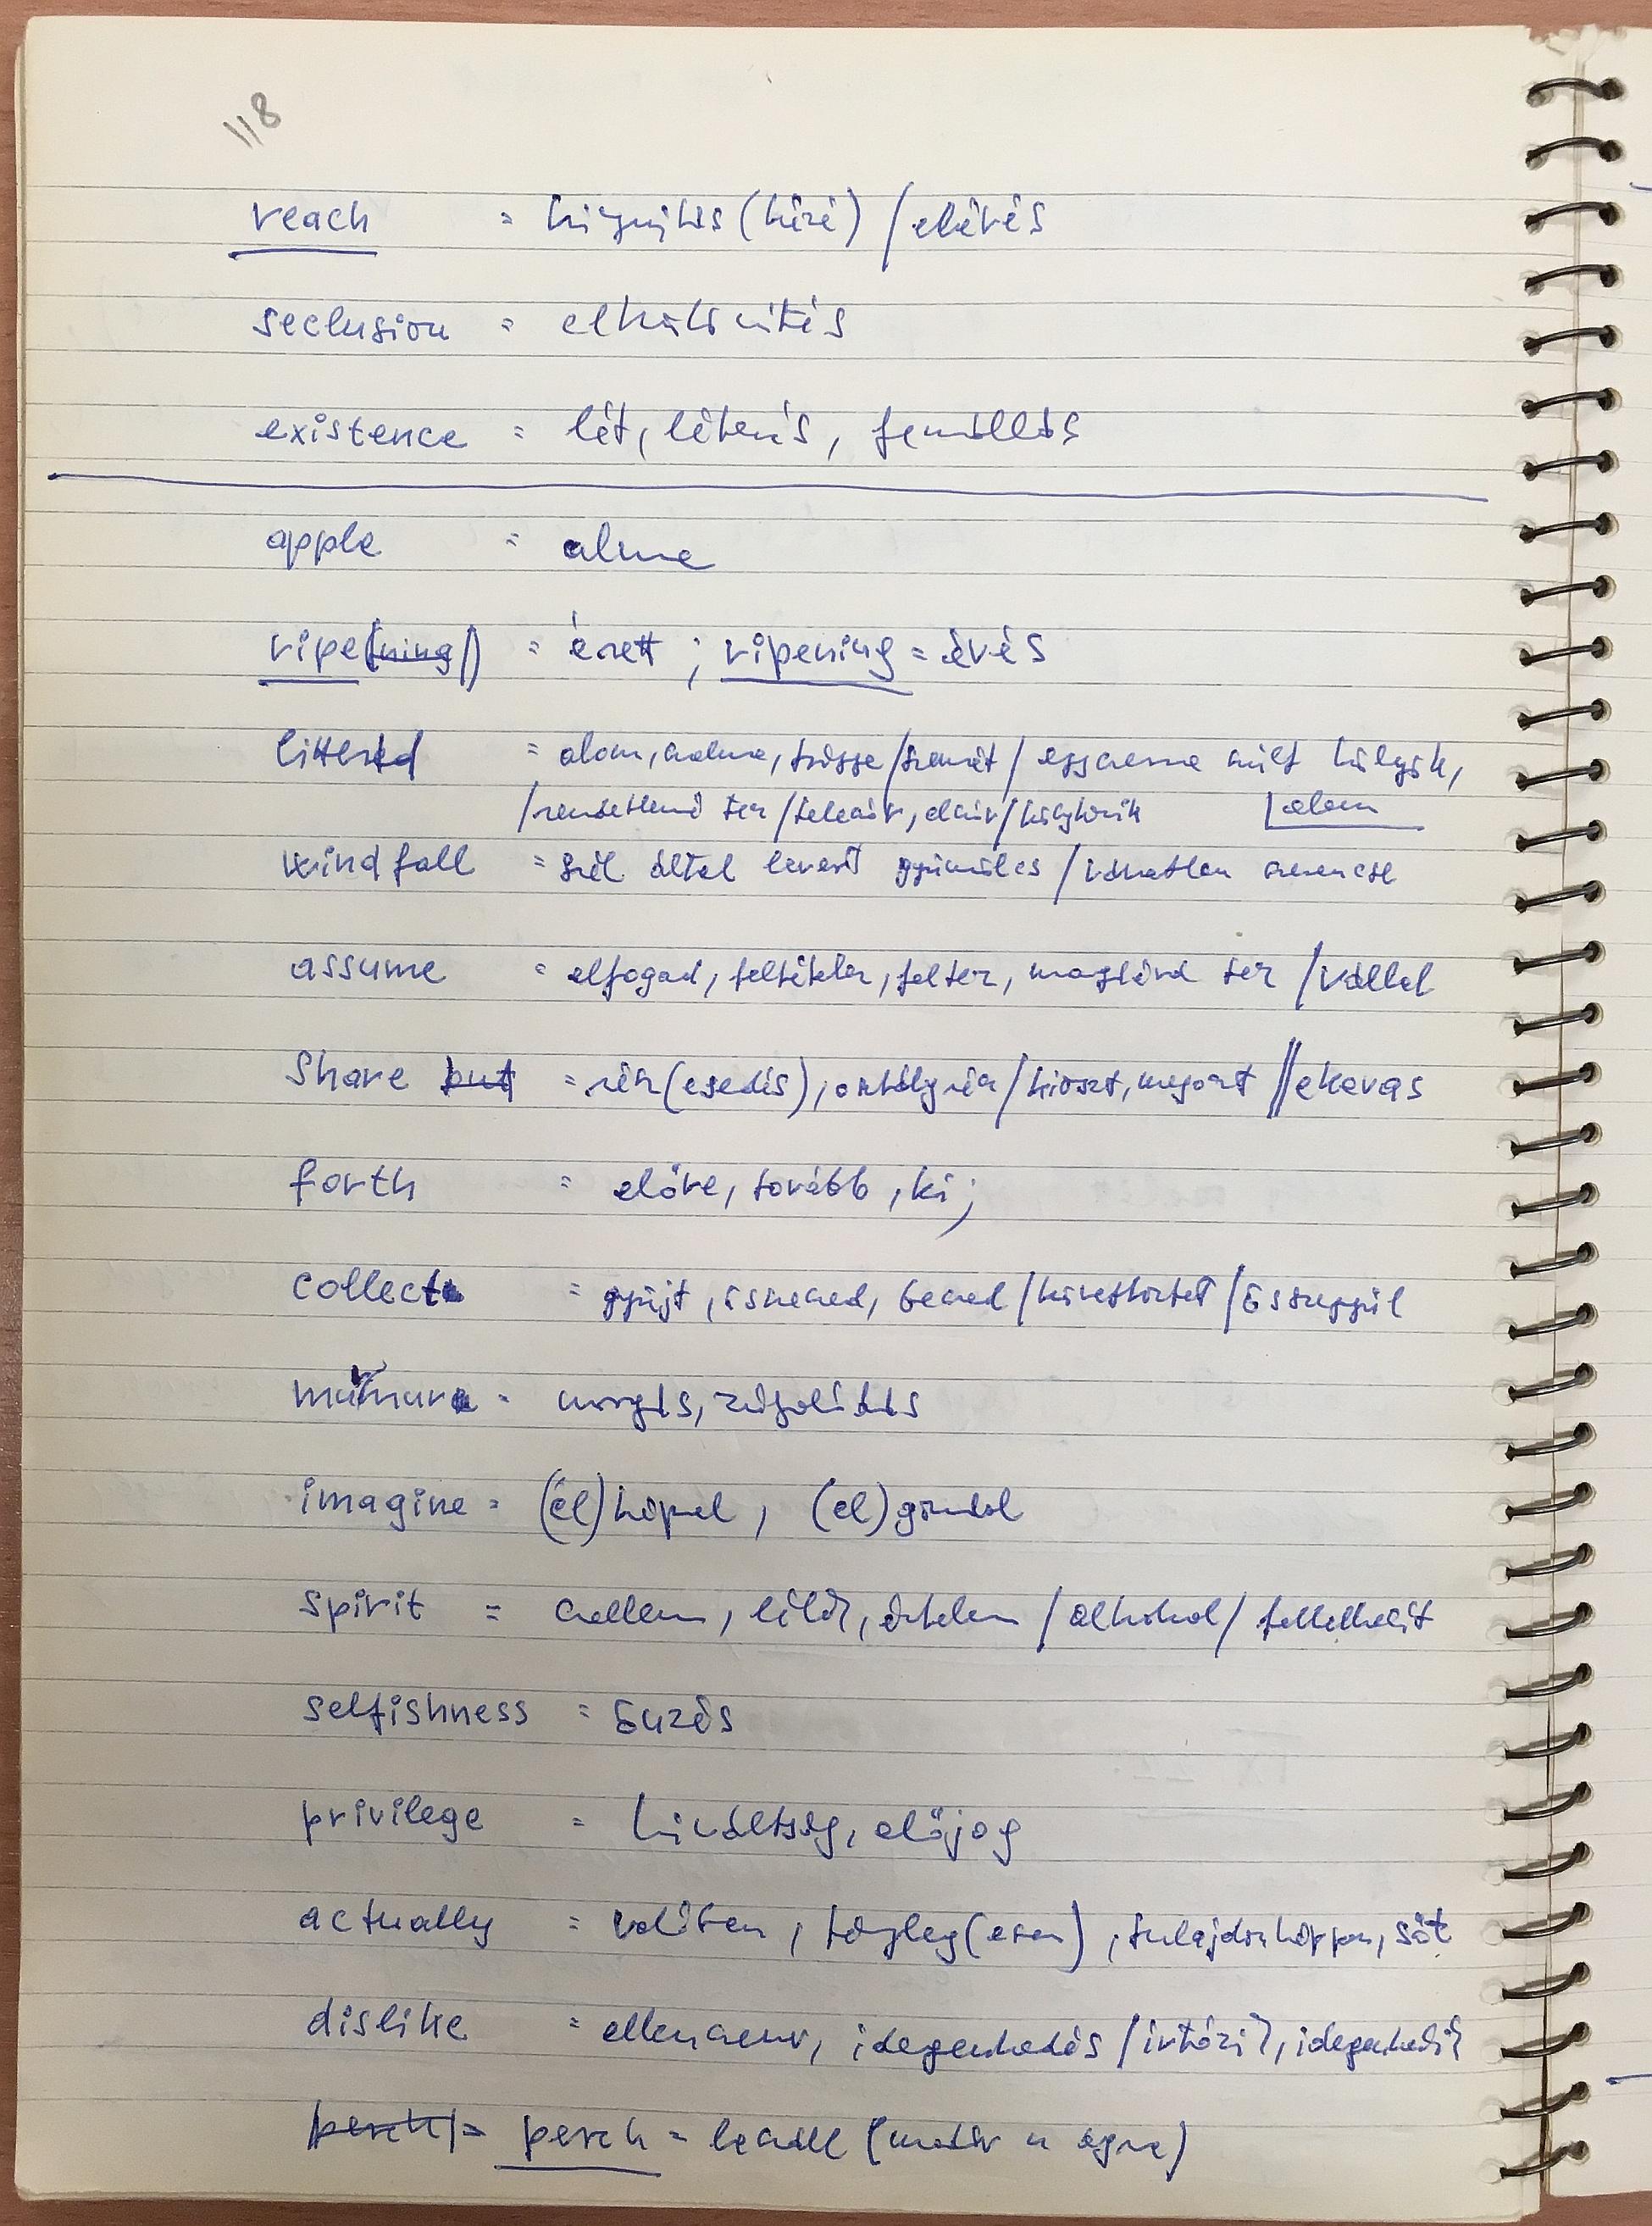 118
reach = kinyújtás (kéz) / elérés
seclusion = elkülönítés
existence = lét, létezés, fennállás
apple = alma
ripe(ning) = érett ; ripening = érés
littered = alom, szalma, trágya / szemét / egyszerre szült kölyök,
/ rendetlenné tesz / teleszór, elszór / kölykezik alom
windfall = szél által levert gyümölcs / váratlan szerencse
assume = elfogad, feltételez, feltesz, magáévá tesz / vállal
share but = rész(esedés), osztályrész / kioszt, megoszt // ekevas
forth = előre, tovább, ki;
collect = gyűjt, összeszed, beszed / következtet / összegyűl
murmur = morgás, zúgolódás
imagine = (el)képzel, (el)gondol
spirit = szellem, lélek, értelem / alkohol / fellelkesít
selfishness = önzés
privilege = kiváltság, előjog
actually = valóban, tényleg(esen), tulajdonképpen, sőt
dislike = ellenszenv, idegenkedés / irtózik, idegenkedik
perch = perch = leszáll (madár az ágra)